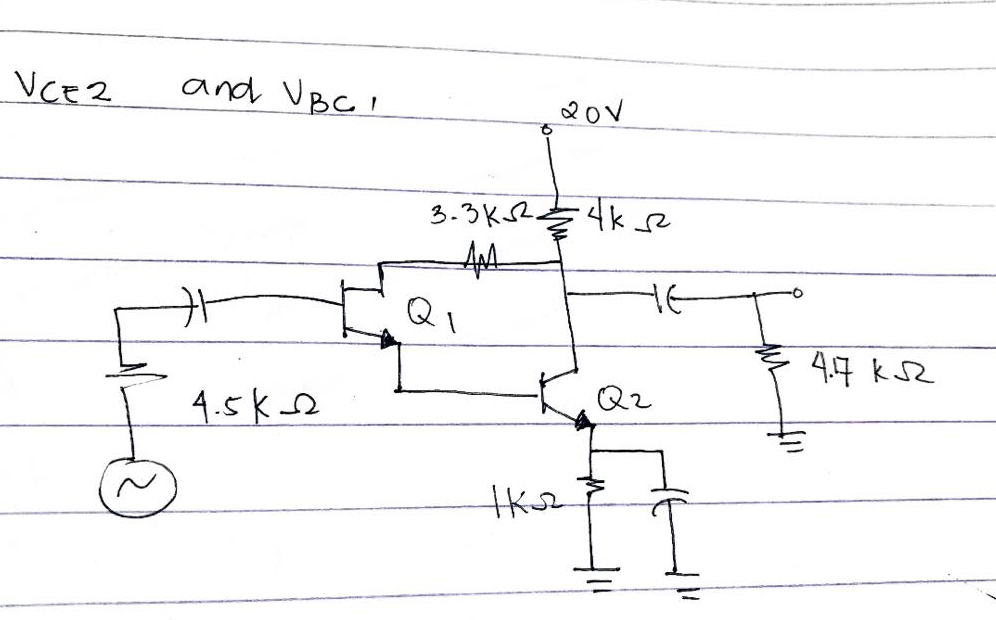 VCE2 and VBC1
20V
3.3KΩ 4kΩ
Q1
4.7 KΩ
4.5KΩ Q2
~
1KΩ